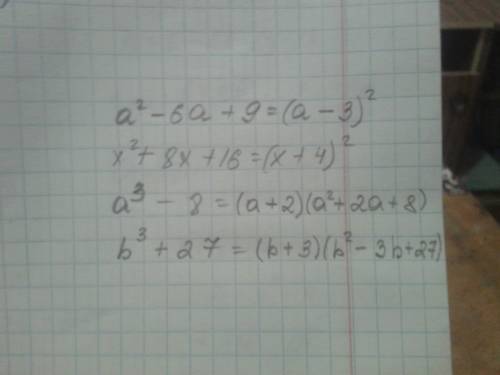 a² - 6a + 9 = (a - 3)²
x² + 8x + 16 = (x + 4)²
a³ - 8 = (a + 2)(a² + 2a + 8)
b³ + 27 = (b + 3)(b² - 3b + 27)